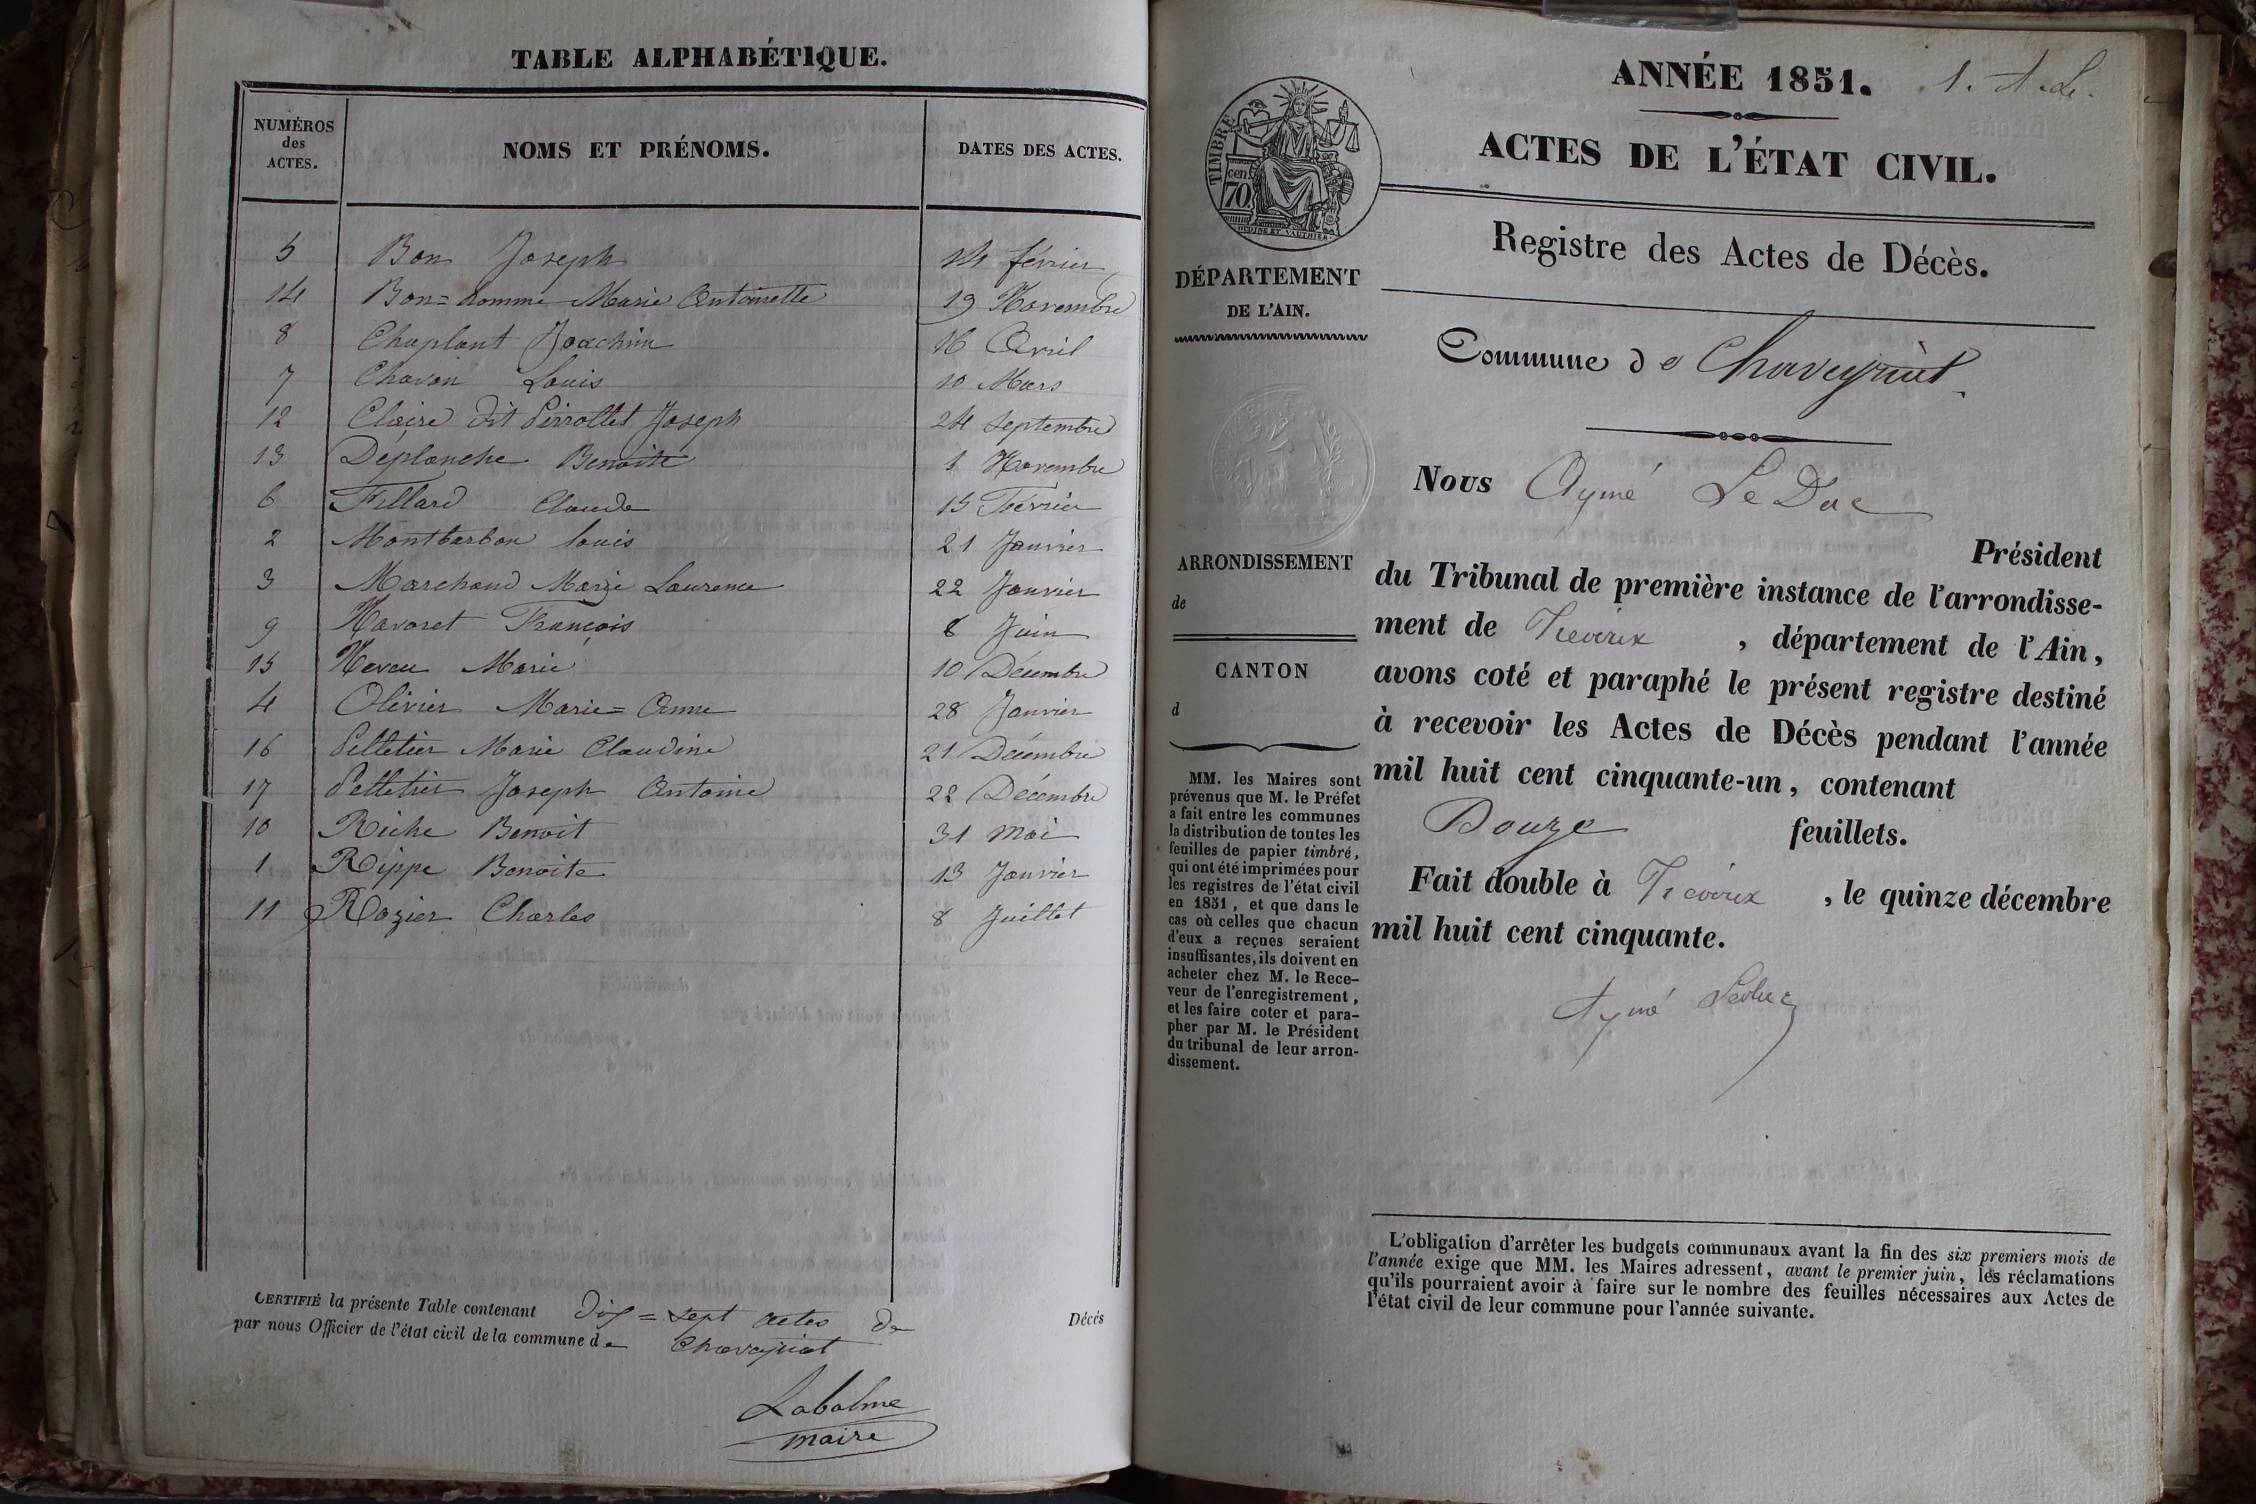 TABLE ALPHABÉTIQUE.
NUMÉROS
des
ACTES.
NOMS ET PRÉNOMS.
DATES DES ACTES.
5 Bon Joseph 14 février
14 Bon=homme Marie Antoinette 19 Novembre
8 Chaplant Joachim 16 Avril
7 Chavon Louis 10 Mars
12 Claire dit Perrollet Joseph 24 Septembre
13 Déplanche Benoite 1 Novembre
6 Fillard Claude 15 Février
2 Montbarbon Louis 21 Janvier
3 Marchand Marie Laurence 22 Janvier
9 Navoret François 8 Juin
15 Neveu Marie 10 Décembre
4 Olivier Marie=Anne 28 Janvier
16 Pelletier Marie Claudine 21 Décembre
17 Pelletier Joseph Antoine 22 Décembre
10 Riche Benoit 31 Mai
1 Rippe Benoite 13 Janvier
11 Rozier Charles 8 Juillet
CERTIFIÉ la présente Table contenant Dix=sept actes de Décés
par nous Officier de l'état civil de la commune de Chaveyriat
Labalme
maire
ANNÉE 1851.
ACTES DE L'ÉTAT CIVIL.
TIMBRE
cen.
70.
OUDINÉ ET VAUTHIER
Registre des Actes de Décès.
DÉPARTEMENT
DE L'AIN.
Commune de Chaveyriat
Nous Aymé LeDuc
Président
du Tribunal de première instance de l'arrondisse-
ment de Trévoux , département de l'Ain,
avons coté et paraphé le présent registre destiné
à recevoir les Actes de Décès pendant l'année
mil huit cent cinquante-un, contenant
Douze feuillets.
Fait double à Trévoux , le quinze décembre
mil huit cent cinquante.
Aymé Leduc
ARRONDISSEMENT
de
CANTON
d
MM. les Maires sont
prévenus que M. le Préfet
a fait entre les communes
la distribution de toutes les
feuilles de papier timbré,
qui ont été imprimées pour
les registres de l'état civil
en 1851, et que dans le
cas où celles que chacun
d'eux a reçues seraient
insuffisantes, ils doivent en
acheter chez M. le Rece-
veur de l'enregistrement,
et les faire coter et para-
pher par M. le Président
du tribunal de leur arron-
dissement.
L'obligation d'arrêter les budgets communaux avant la fin des six premiers mois de
l'année exige que MM. les Maires adressent, avant le premier juin, les réclamations
qu'ils pourraient avoir à faire sur le nombre des feuilles nécessaires aux Actes de
l'état civil de leur commune pour l'année suivante.